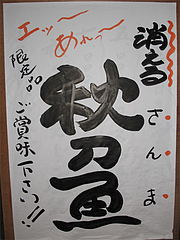 消える
さんま
秋刀魚
エッ〜
あれっ〜
限定品。
ご賞味下さい!!